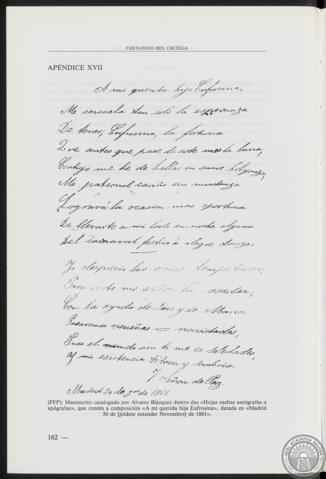 FERNANDO BEL ORTEGA
APÉNDICE XVII
A mi querida hija Eufrosina.
Me consuela tan solo la esperanza
De tener, Eufrosina, la fortuna
Que antes que pase de este mes la luna,
Contigo me he de hallar en suave holganza,
Me paternal cariño sin mudanza
Logrará la ocasion mas oportuna
De llevarte a mi lado en noche alguna
Del carnaval festivo á alegre danza.
Yo desprecio las
Con la ayuda de Dios y de Maria
Pasaremos risueñas navidades,
Pues el mundo sin ti me es soledades,
y mi existencia tétrica y sombria.
Madrid 30 de
(FFP): Manuscrito catalogado por Alvarez Blázquez dentro das «Hojas sueltas autógrafas o
apógrafas», que contén a composición «A mi querida hija Eufrosina», datada en «Madrid
30 de [pódese entender Novembro] de 1861».
162 —